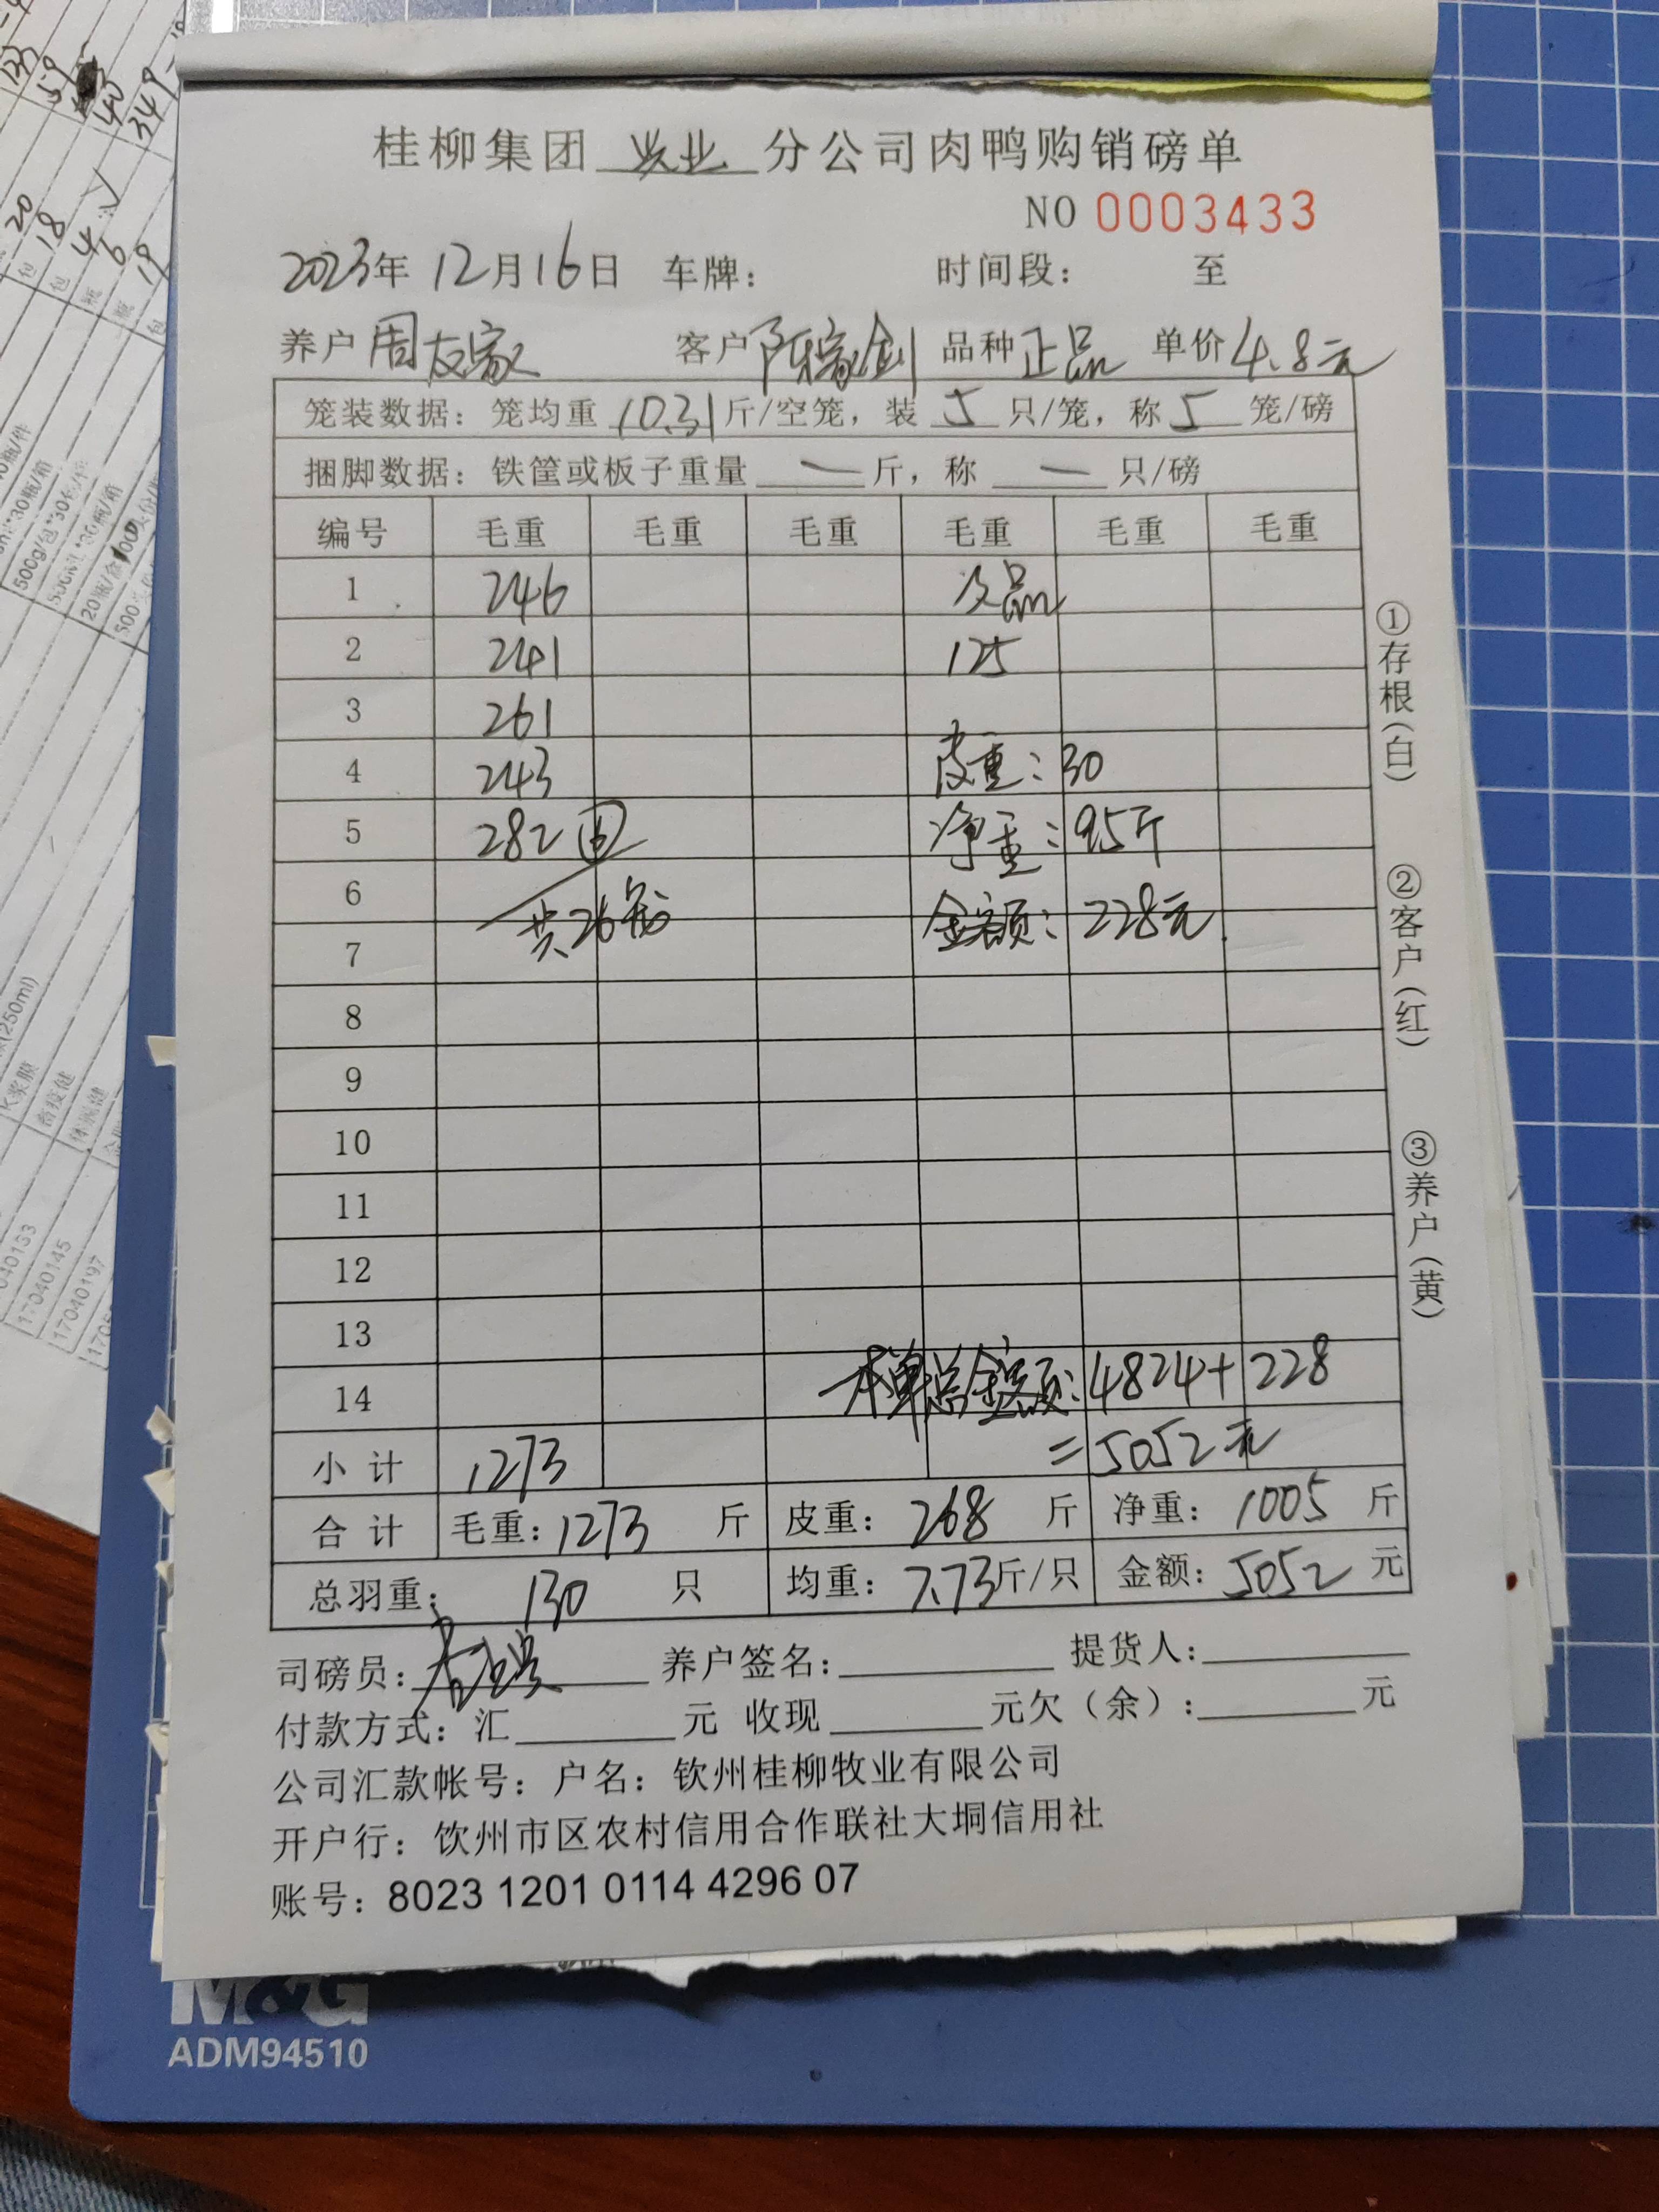 桂柳集团 兴业 分公司肉鸭购销磅单
NO 0003433
2023年 12月16日 车牌： 时间段： 至
养户 周友家 客户 陈家剑 品种 正品 单价 4.8元
笼装数据：笼均重 10.31 斤/空笼，装 5 只/笼，称 5 笼/磅
捆脚数据：铁筐或板子重量 — 斤，称 — 只/磅
编号 毛重 毛重 毛重 毛重 毛重 毛重
1 246 次品
2 241 125
3 261
4 243 皮重：30
5 282 净重：95斤
6 共26笼 金额：228元
7
8
9
10
11
12
13
14 本单总金额：4824+228
小计 1273 =5052元
合计 毛重：1273 斤 皮重：268 斤 净重：1005 斤
总羽重： 130 只 均重：7.73斤/只 金额：5052 元
司磅员： 养户签名： 提货人：
付款方式：汇 元 收现 元欠（余）： 元
公司汇款帐号：户名：钦州桂柳牧业有限公司
开户行：饮州市区农村信用合作联社大垌信用社
账号：8023 1201 0114 4296 07
①存根（白）
②客户（红）
③养户（黄）
M&G
ADM94510
123
59
40
349
20
18
4
6
19
包
包
瓶
瓶
包
500g/包*30包/件
(250ml)
浆膜
17040145
17040197